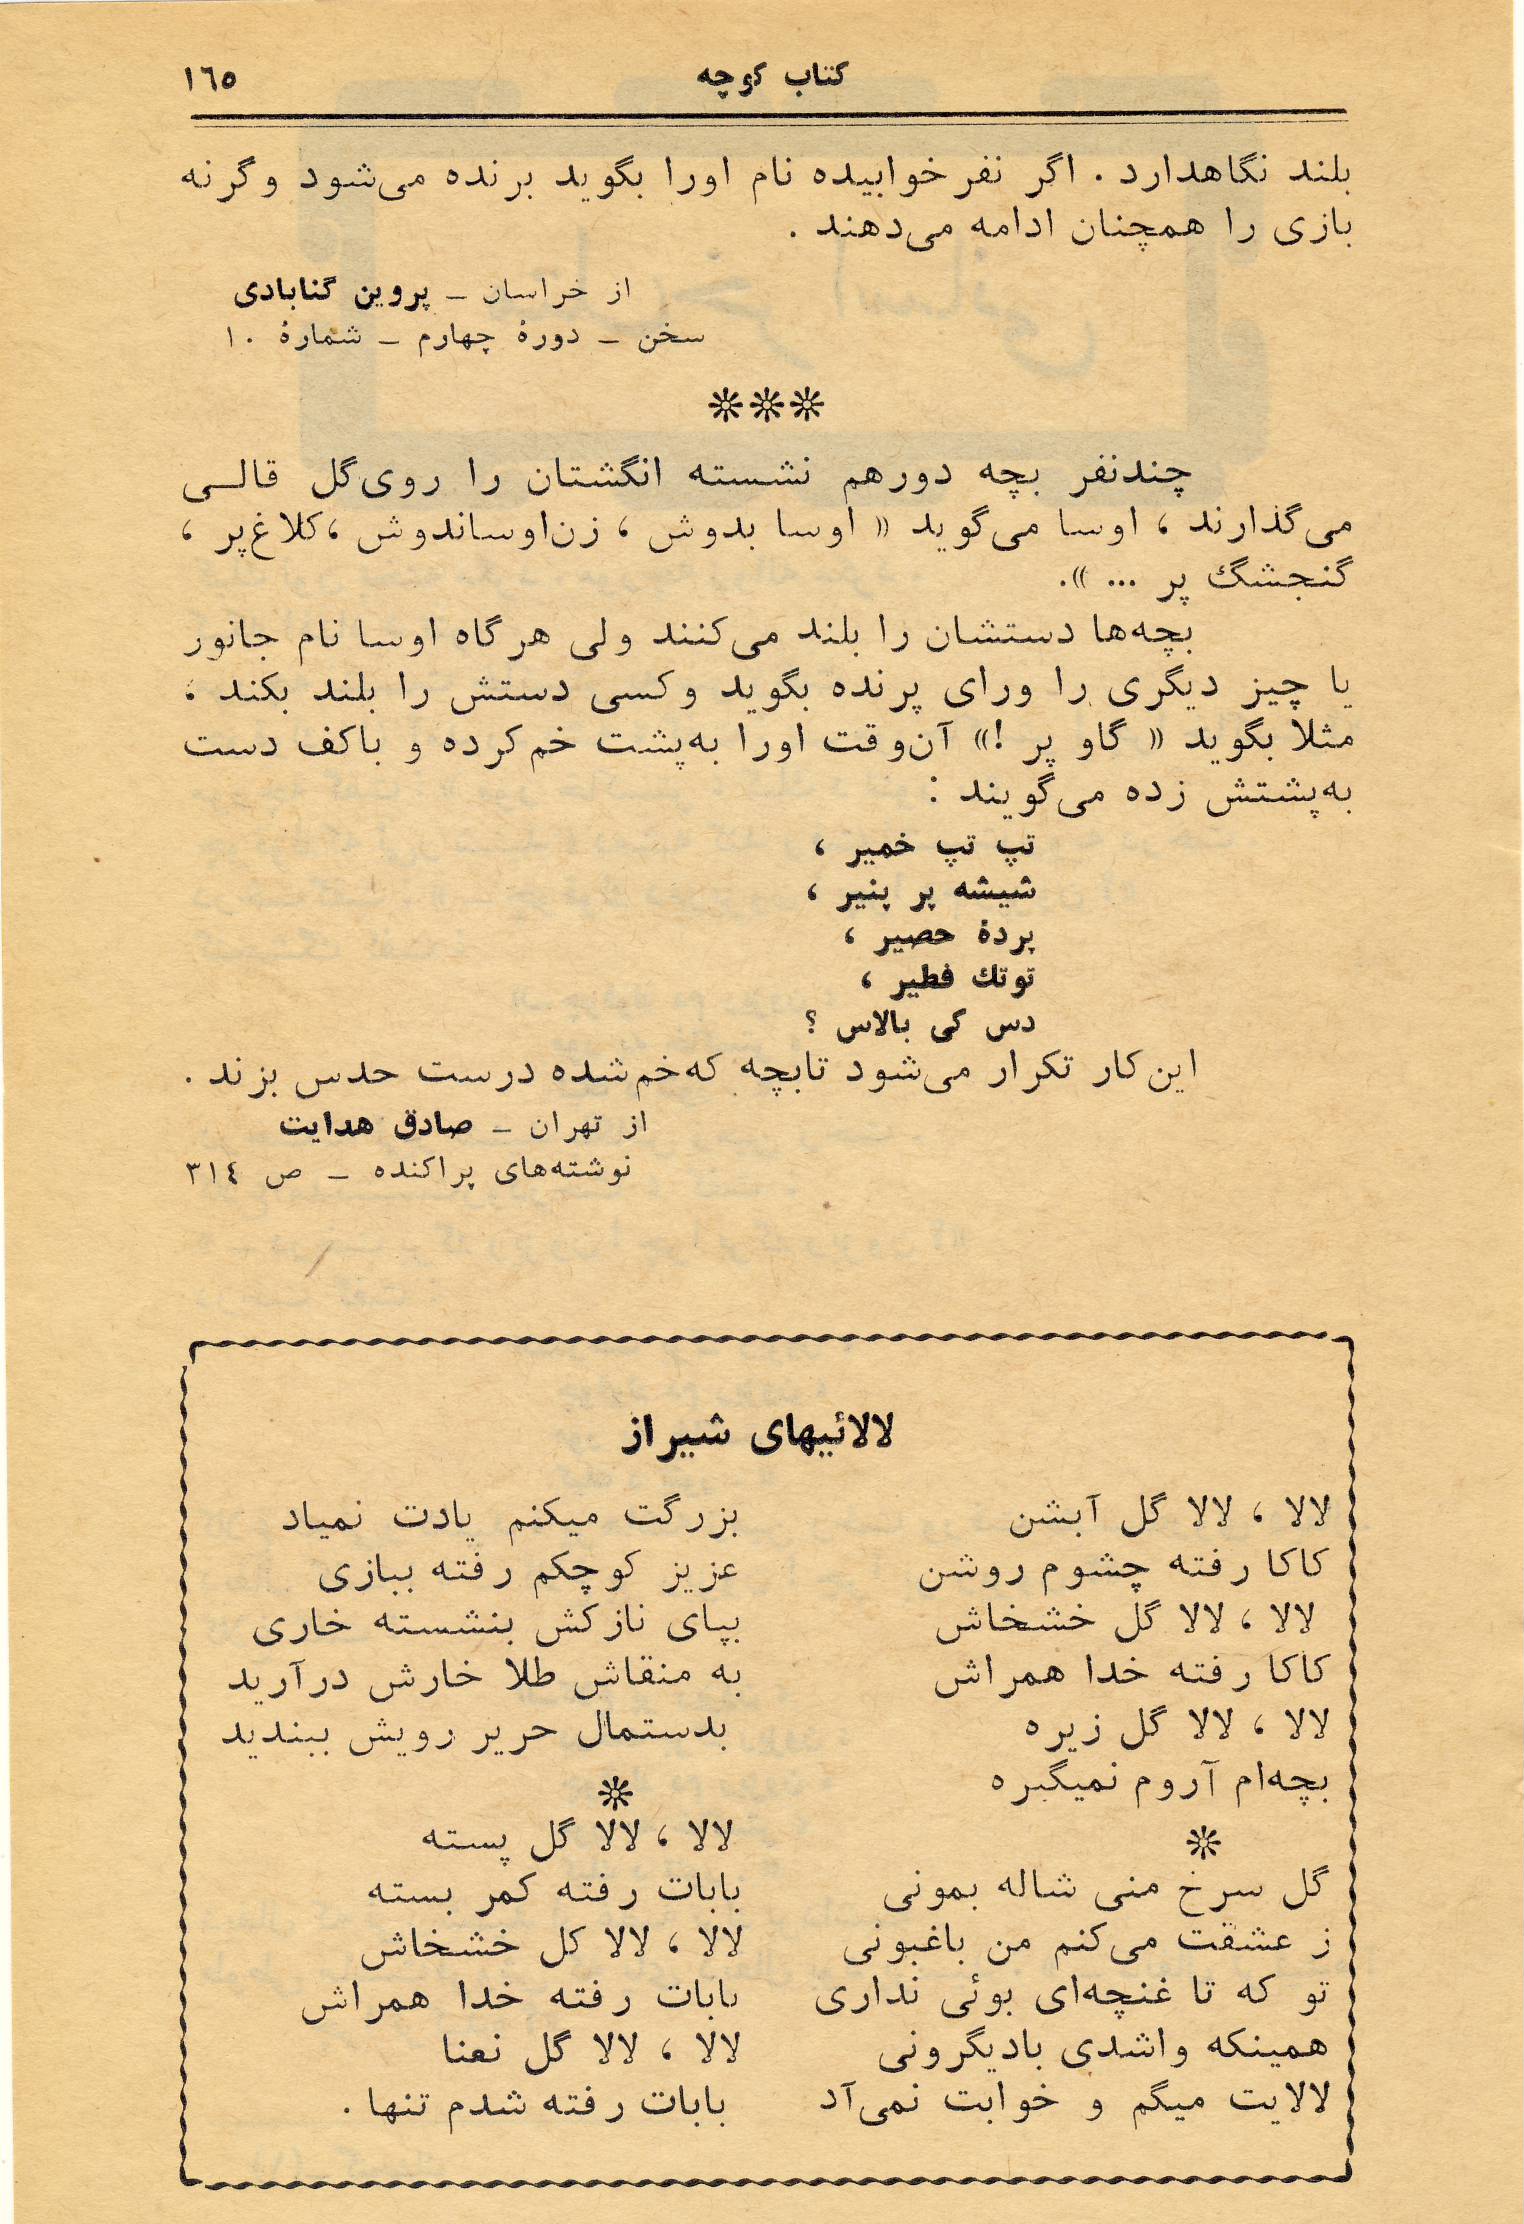 کتاب کوچه
١٦٥
بلند نگاهدارد . اگر نفر خوابیده نام اورا بگوید برنده می‌شود وگرنه
بازی را همچنان ادامه می‌دهند .
از خراسان ـ پروین گنابادی
سخن ـ دورهٔ چهارم ـ شمارهٔ ١٠
***
چندنفر بچه دورهم نشسته انگشتان را روی‌گل قالی
می‌گذارند ، اوسا می‌گوید « اوسا بدوش ، زن‌اوساندوش ،کلاغ‌پر ،
گنجشگ پر ... ».
بچه‌ها دستشان را بلند می‌کنند ولی هرگاه اوسا نام جانور
یا چیز دیگری را ورای پرنده بگوید وکسی دستش را بلند بکند ؛
مثلا بگوید « گاو پر !» آن‌وقت اورا به‌پشت خم‌کرده و باکف دست
به‌پشتش زده می‌گویند :
تپ تپ خمیر ،
شیشه پر پنیر ،
پردهٔ حصیر ،
توتك فطیر ،
دس کی بالاس ؟
این‌کار تکرار می‌شود تابچه که‌خم‌شده درست حدس بزند .
از تهران ـ صادق هدایت
نوشته‌های پراکنده ـ ص ٣١٤
لالائیهای شیراز
لالا ، لالا گل آبشن
کاکا رفته چشوم روشن
لالا ، لالا گل خشخاش
کاکا رفته خدا همراش
لالا ، لالا گل زیره
بچه‌ام آروم نمیگیره
*
گل سرخ منی شاله بمونی
ز عشقت می‌کنم من باغبونی
تو که تا غنچه‌ای بوئی نداری
همینکه واشدی بادیگرونی
لالایت میگم و خوابت نمی‌آد
بزرگت میکنم یادت نمیاد
عزیز کوچکم رفته ببازی
بپای نازکش بنشسته خاری
به منقاش طلا خارش درآرید
بدستمال حریر رویش ببندید
*
لالا ، لالا گل پسته
بابات رفته کمر بسته
لالا ، لالا کل خشخاش
بابات رفته خدا همراش
لالا ، لالا گل نعنا
بابات رفته شدم تنها .